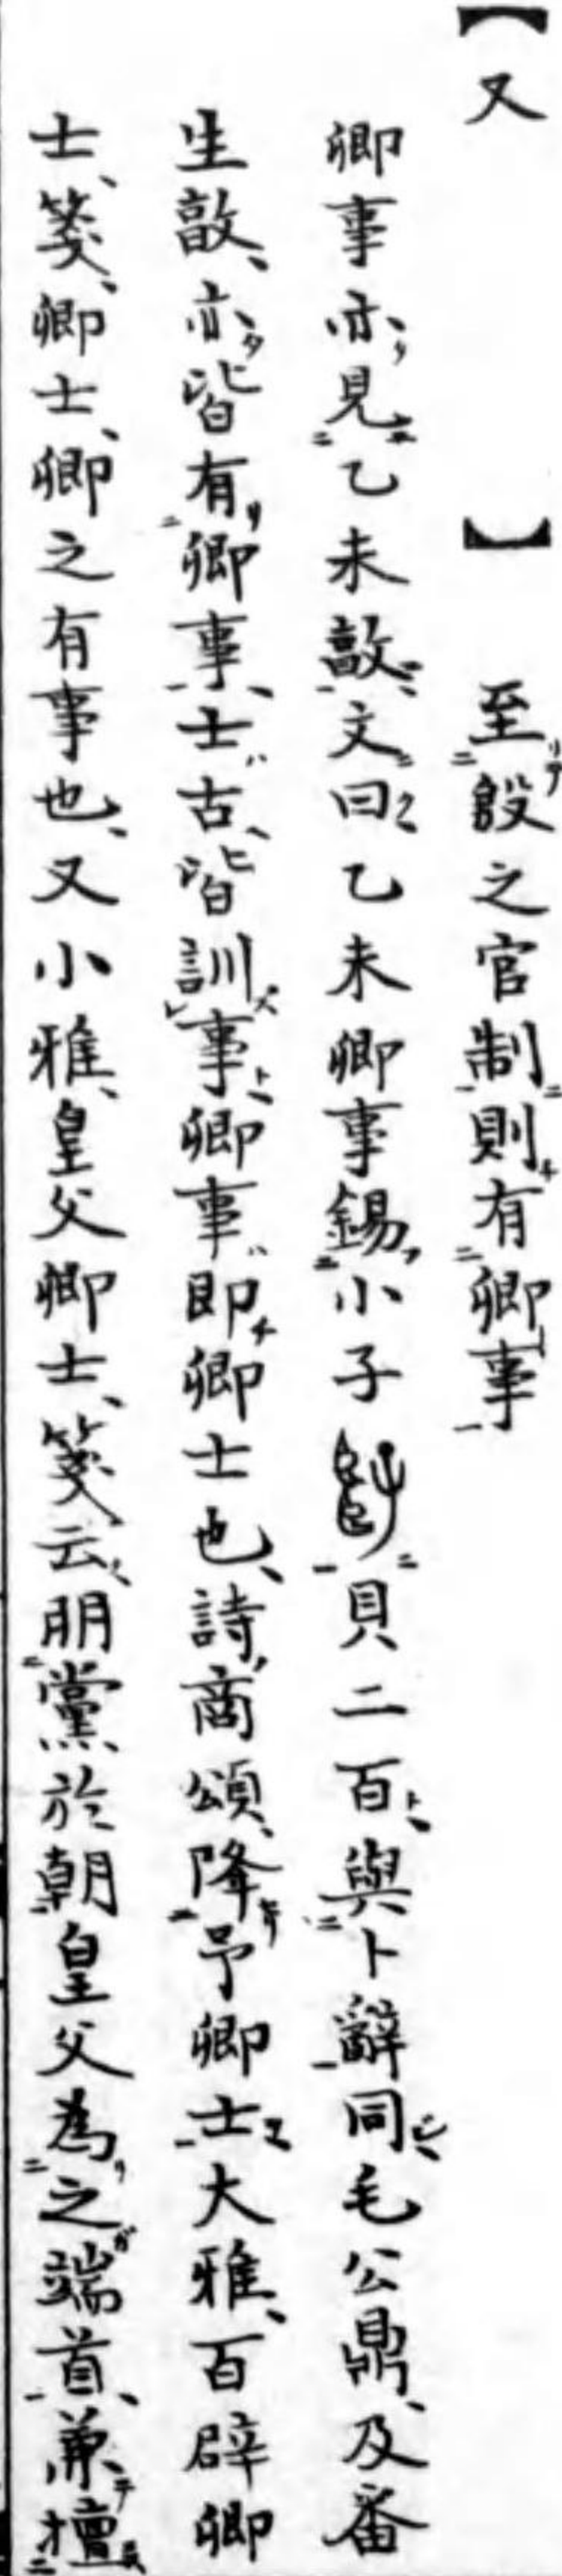 【又　　　】至殷之官制則有卿事
卿事亦見乙未敦文曰乙未卿事錫小子貝二百與卜辭同毛公鼎、及番
生敦、亦皆有卿事、士古、皆訓事、卿事即卿士也、詩商頌、降予卿士大雅、百辟卿
士、箋、卿士、卿之有事也、又小雅、皇父卿士、箋云朋黨於朝皇父為之端首、兼擅